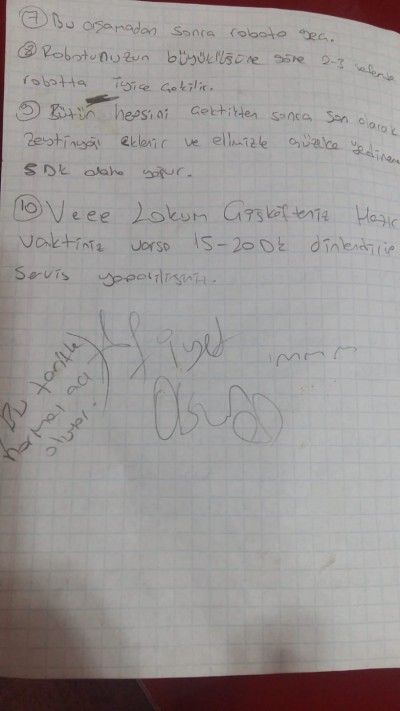 ⑦ Bu aşamadan sonra robota geç.
⑧ Robotunuzun büyüklüğüne göre 2-3 seferde
robotta iyice çekilir.
⑨ Bütün hepsini çektikten sonra son olarak
zeytinyağı eklenir ve elinizle güzelce
5 DK daha yoğur.
⑩ Veee Lokum Çiğköfteniz Hazır
vaktiniz varsa 15-20 DK dinlendirip
servis yapabilirsiniz.
Afiyet
Olsun
Bu tarifle
normal acı
oluyor.